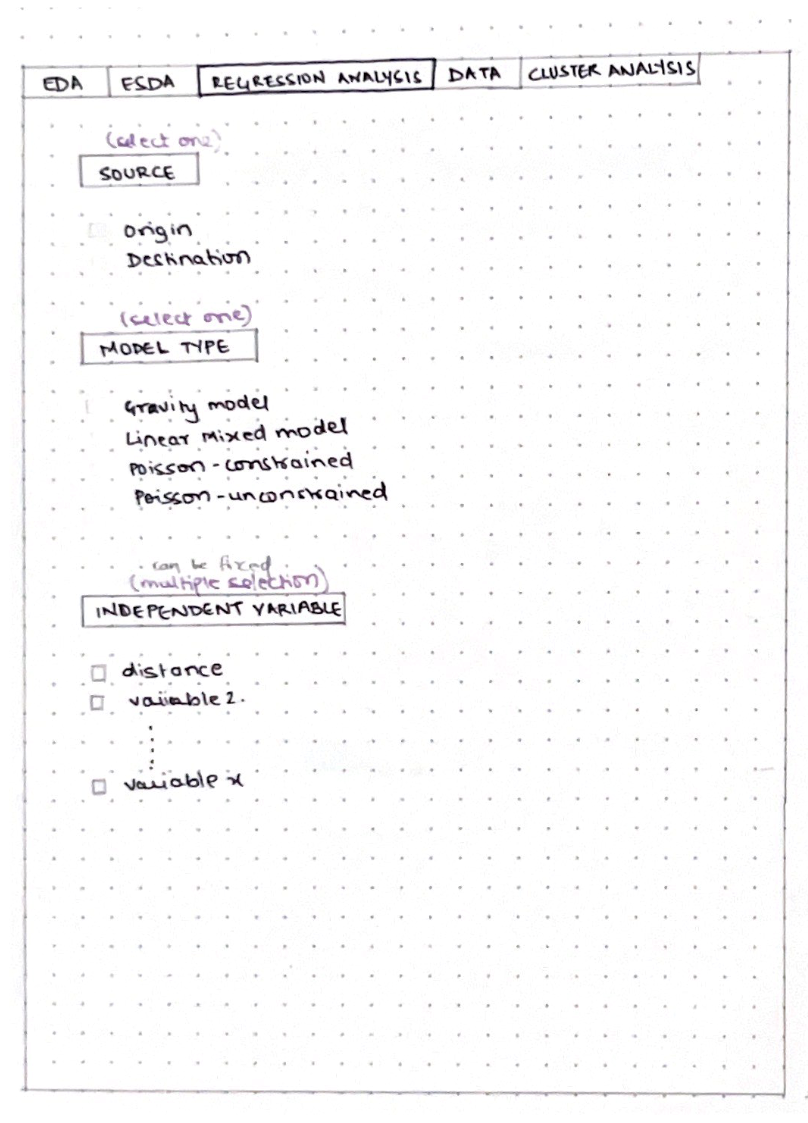 EDA ESDA REGRESSION ANALYSIS DATA CLUSTER ANALYSIS
(select one)
SOURCE
Origin
Destination
(select one)
MODEL TYPE
Gravity model
Linear Mixed model
Poisson-constrained
Poisson-unconstrained
can be fixed
(multiple selection)
INDEPENDENT VARIABLE
distance
variable 2.
variable x